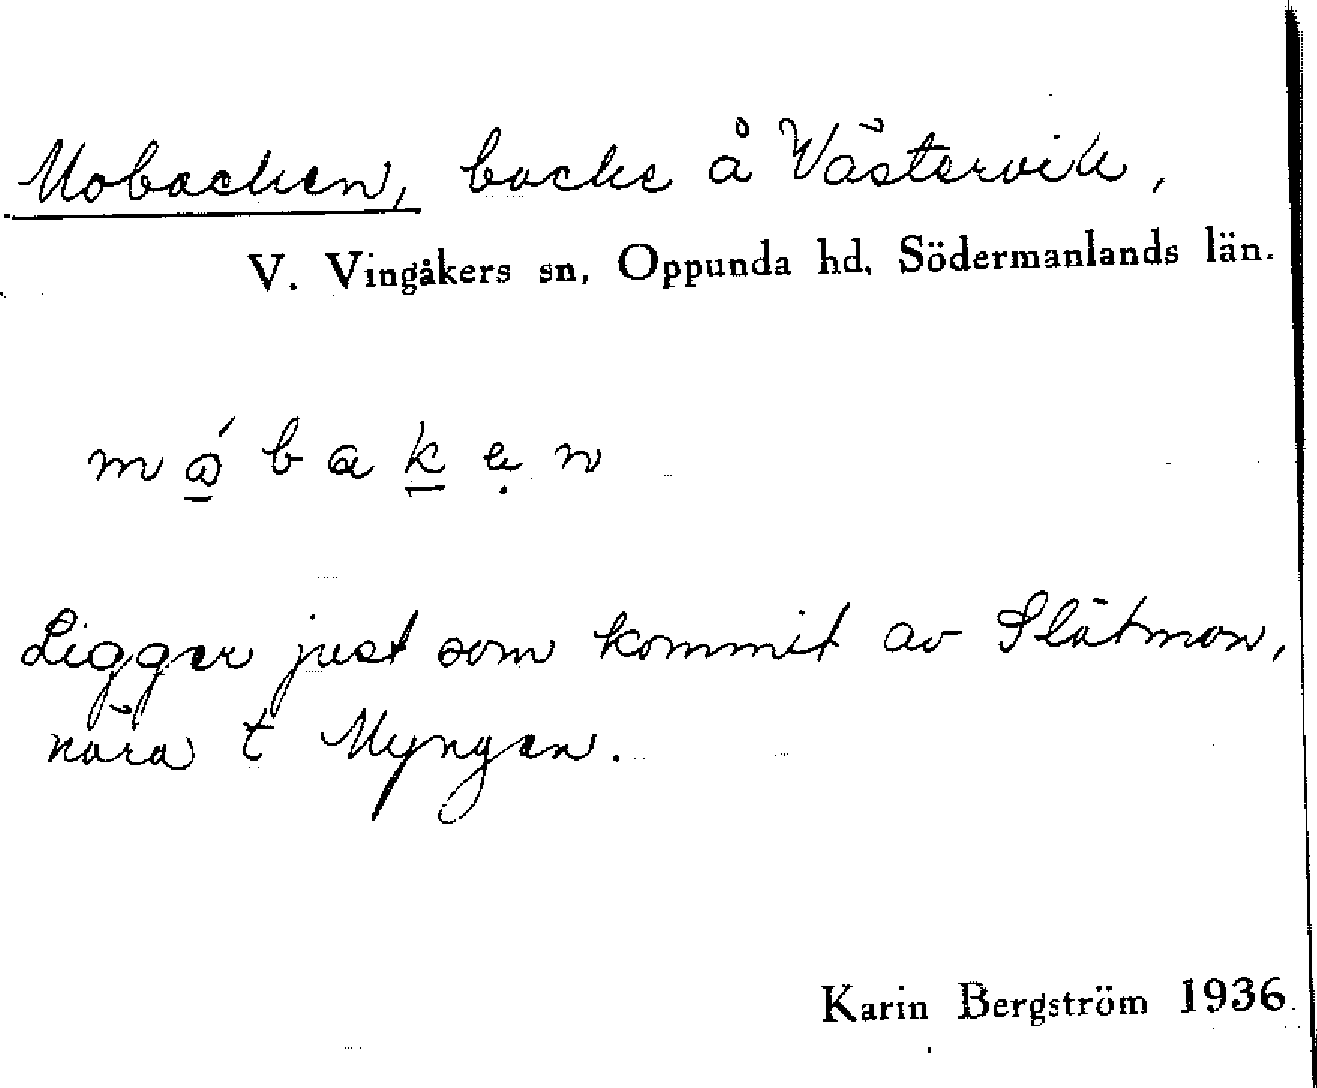 Mobacken, backe å Västervik,
V. Vingåkers sn, Oppunda hd, Södermanlands län.
mώ̲bak̲ẹn
Ligger just som kommit av Slätmon,
nära t Myngen.
Karin Bergström 1936